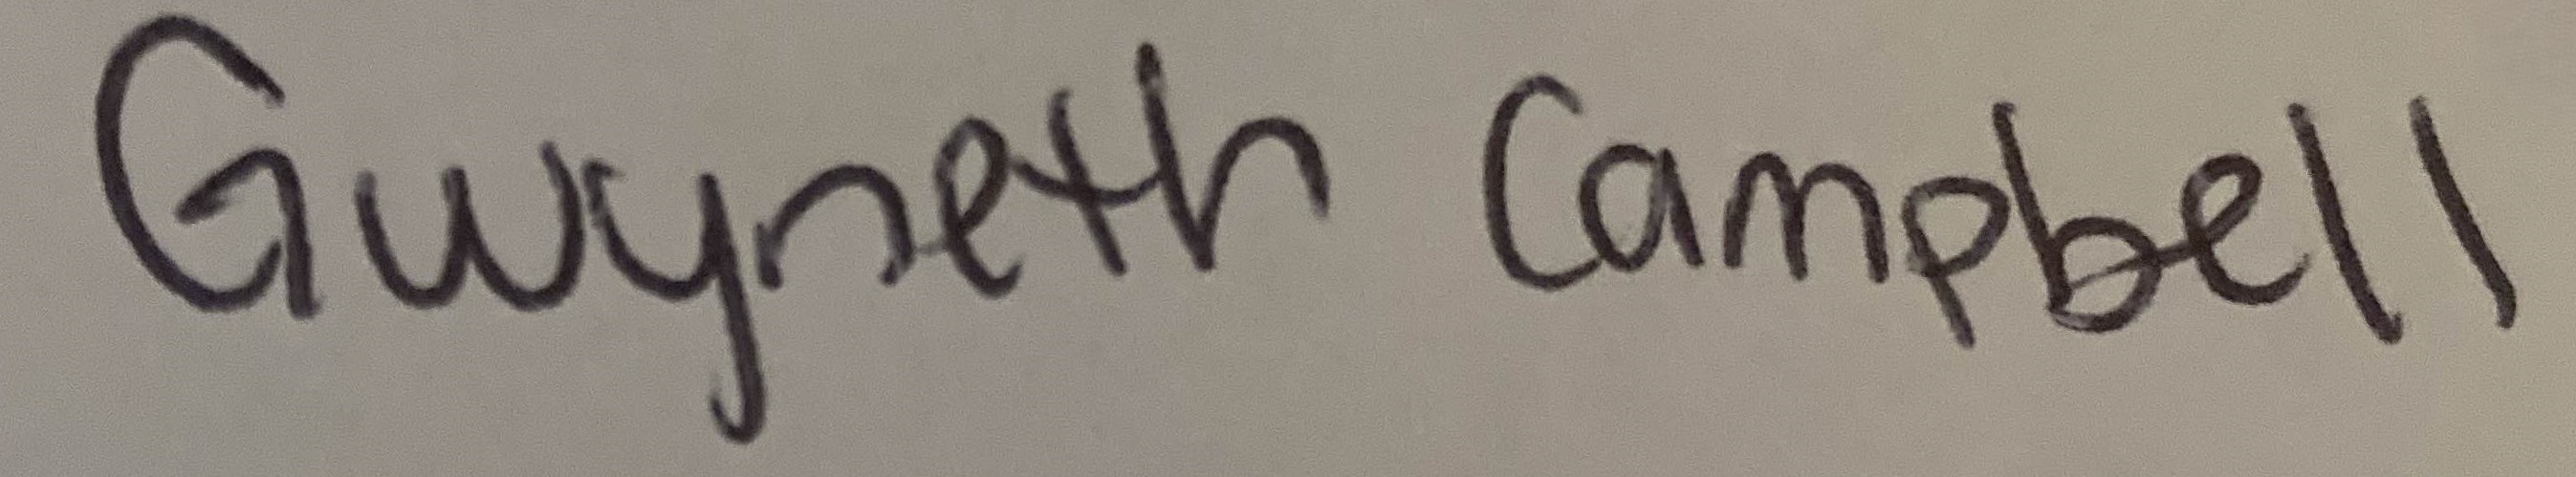 Gwyneth Campbell